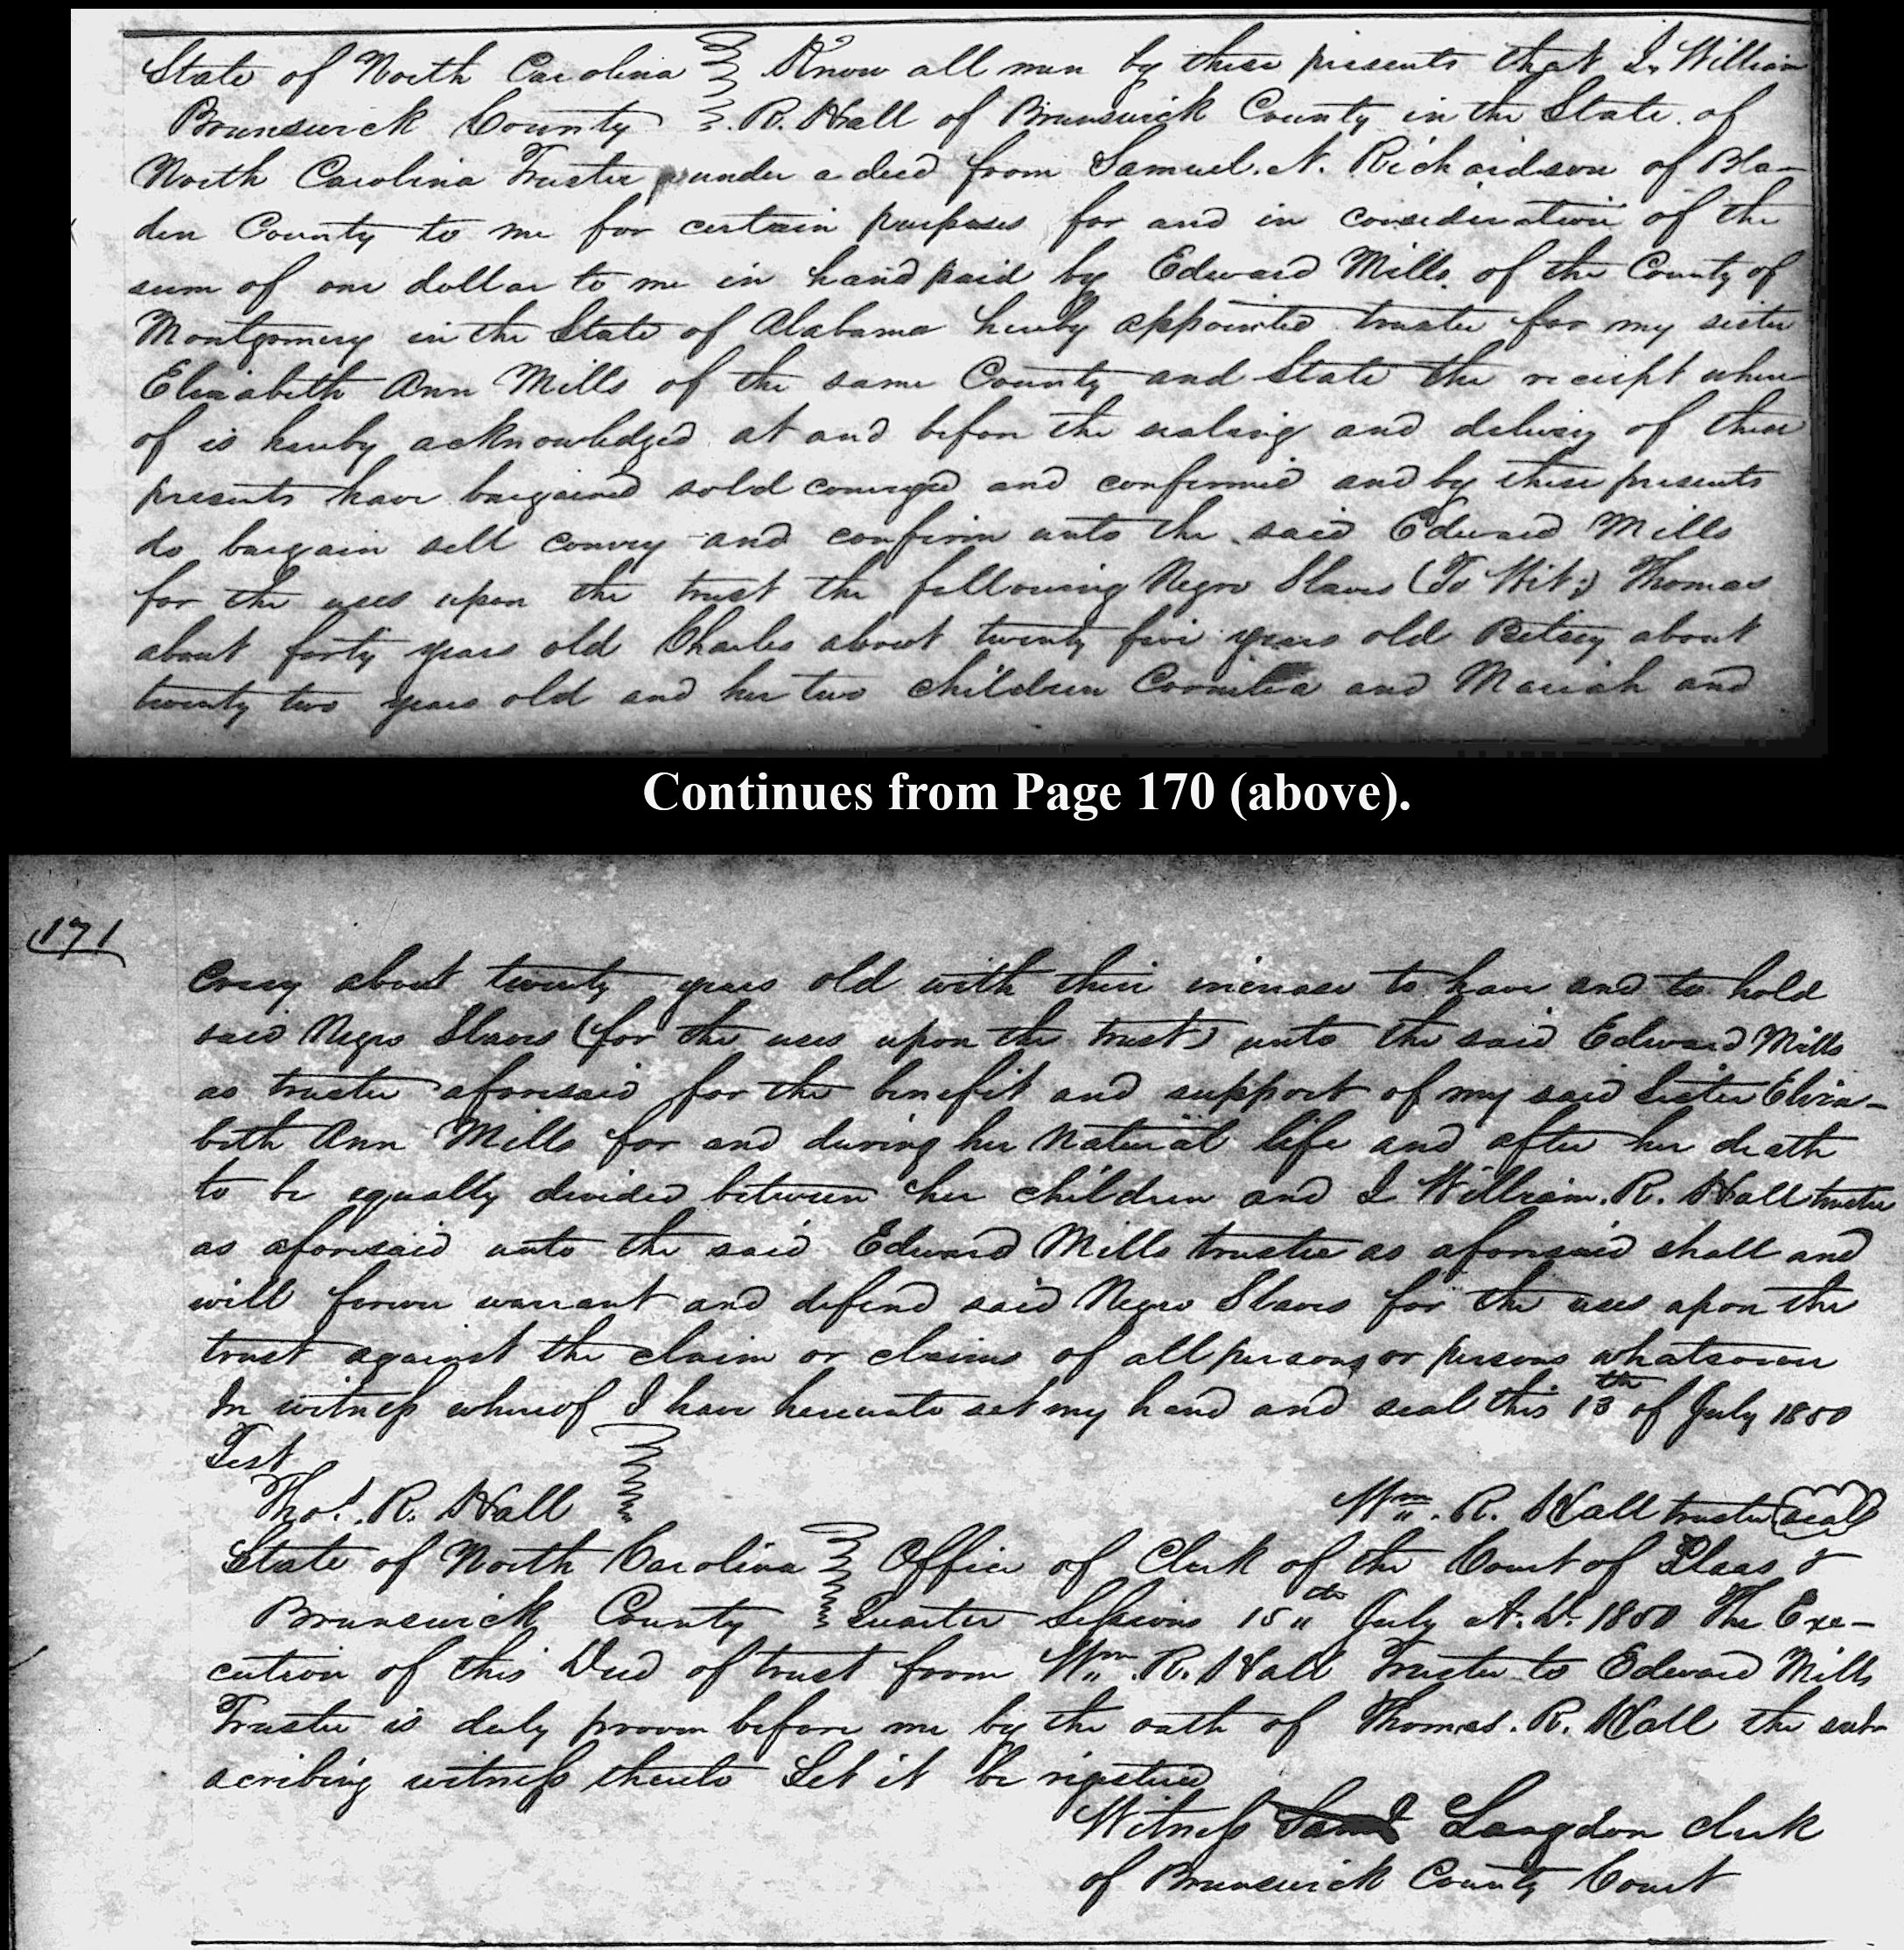 State of North Carolina Know all men by these presents that I, William
Brunswick County R. Hall of Brunswick County in the State of
North Carolina Trustee under a deed from Samuel. N. Richardson of Bla-
den County to me for certain purposes for and in consideration of the
sum of one dollar to me in hand paid by Edward Mills of the County of
Montgomery in the State of Alabama hereby appointed trustee for my sister
Elizabeth Ann Mills of the same County and State the receipt where
of is hereby acknowledged at and before the sealing and delivery of these
presents have bargained sold conveyed and confirmed and by these presents
do bargain sell convey and confirm unto the said Edward Mills
for the uses upon the trust the following Negro Slaves (To Wit:) Thomas
about forty years old Charles about twenty five years old Betsey about
twenty two years old and her two children and Mariah and
Continues from Page 170 (above).
171
about twenty years old with their increase to have and to hold
said Negro Slaves (for the uses upon the trust) unto the said Edward Mills
as trustee aforesaid for the benefit and support of my said Sister Eliza-
beth Ann Mills for and during her natural life and after her death
to be equally divided between her children and I William. R. Hall trustee
as aforesaid unto the said Edward Mills trustee as aforesaid shall and
will forever warrant and defend said Negro Slaves for the uses upon the
trust against the claim or claims of all persons or persons whatsoever
In witness whereof I have hereunto set my hand and seal this 13th of July 1850
Test
Thos. R. Hall Wm. R. Hall trustee seal
State of North Carolina Office of Clerk of the Court of Pleas &
Brunswick County Quarter Sessions 15th July A.D. 1850 The Exe-
cution of this Deed of trust from Wm. R. Hall Trustee to Edward Mills
Trustee is duly proven before me by the oath of Thomas. R. Hall the sub-
scribing witness thereto Let it be registered
Witness Saml Langdon clerk
of Brunswick County Court